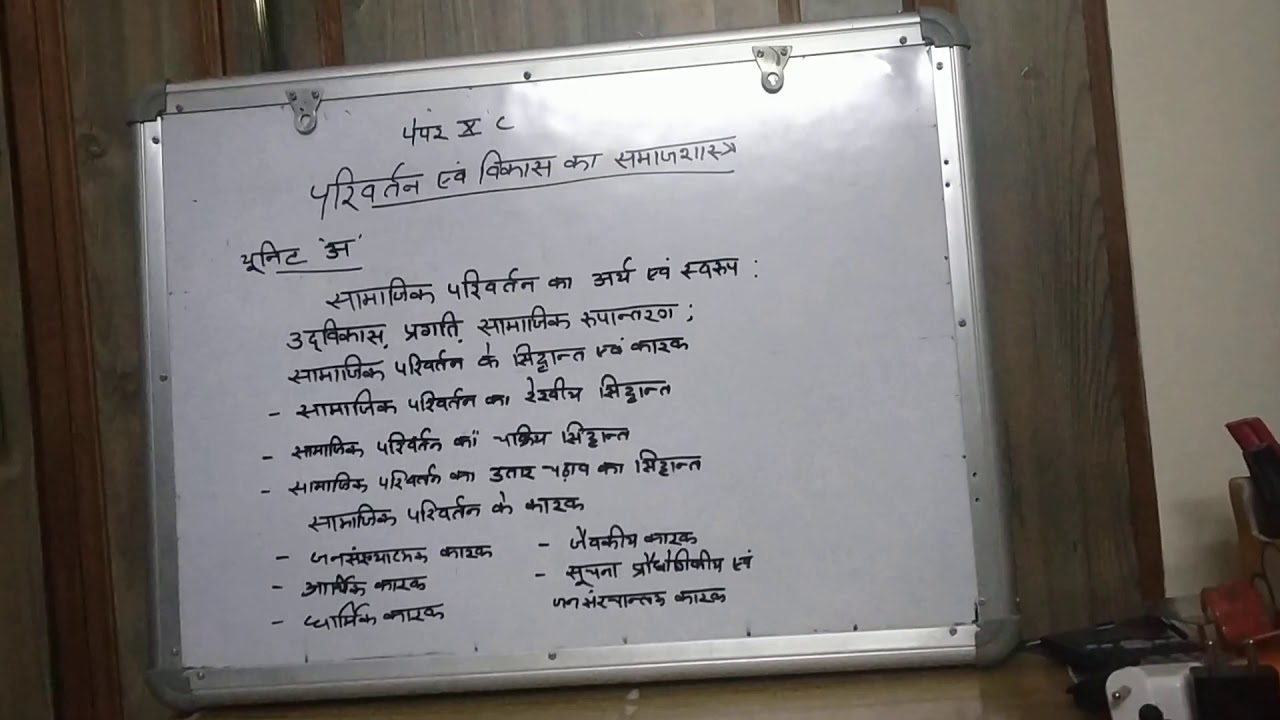 पेपर X C
परिवर्तन एवं विकास का समाजशास्त्र
यूनिट 'अ'
सामाजिक परिवर्तन का अर्थ एवं स्वरूप :
उद्विकास, प्रगति, सामाजिक रूपान्तरण ;
सामाजिक परिवर्तन के सिद्धान्त एवं कारक
- सामाजिक परिवर्तन का रेखीय सिद्धान्त
- सामाजिक परिवर्तन का चक्रिय सिद्धान्त
- सामाजिक परिवर्तन का उतार चढ़ाव का सिद्धान्त
सामाजिक परिवर्तन के कारक
- जनसंख्यात्मक कारक
- आर्थिक कारक
- धार्मिक कारक
- जैवकीय कारक
- सूचना प्रौद्योगिकीय एवं
कारक